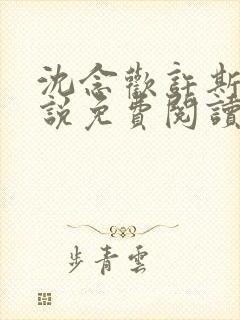 沈念歡許斯
說免費閱讀
步青雲